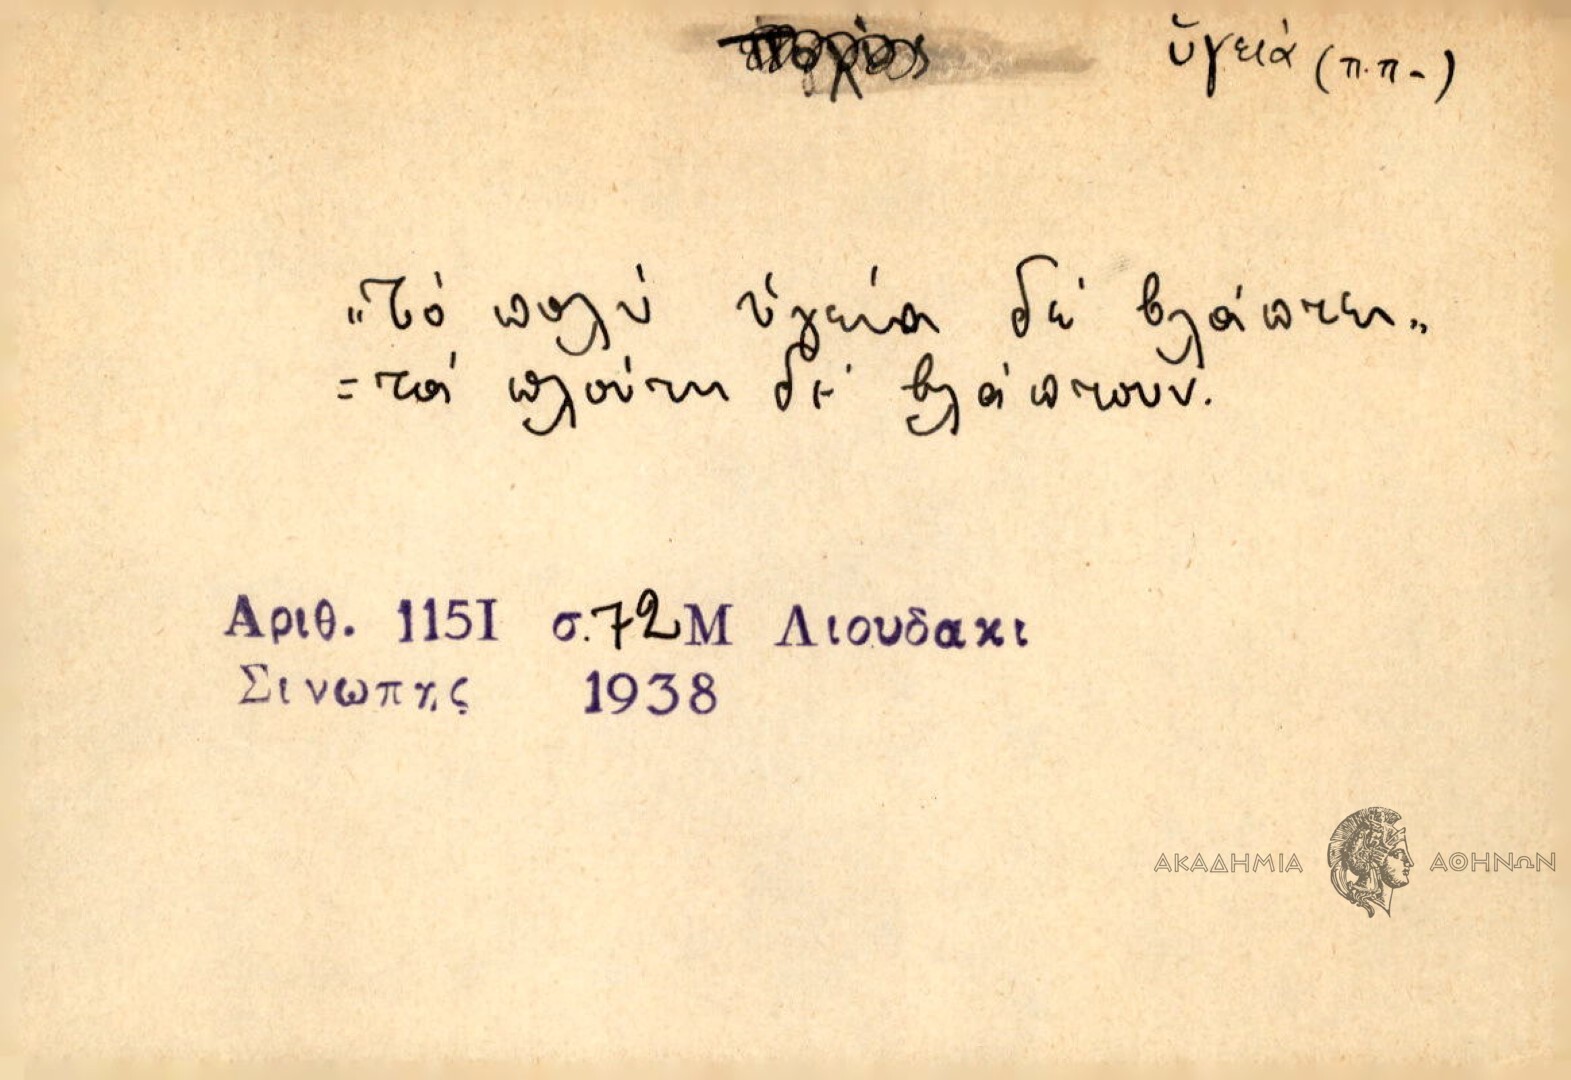 ὑγειά (π.π.)
"Τό πολύ ὑγεία δέ βλάπτει"
=τά πλούτη δέ βλάπτουν.
Αριθ. 1151 σ.72 Μ Λιουδακι
Σινωπης 1938
ΑΚΑΔΗΜΙΑ ΑΘΗΝΩΝ